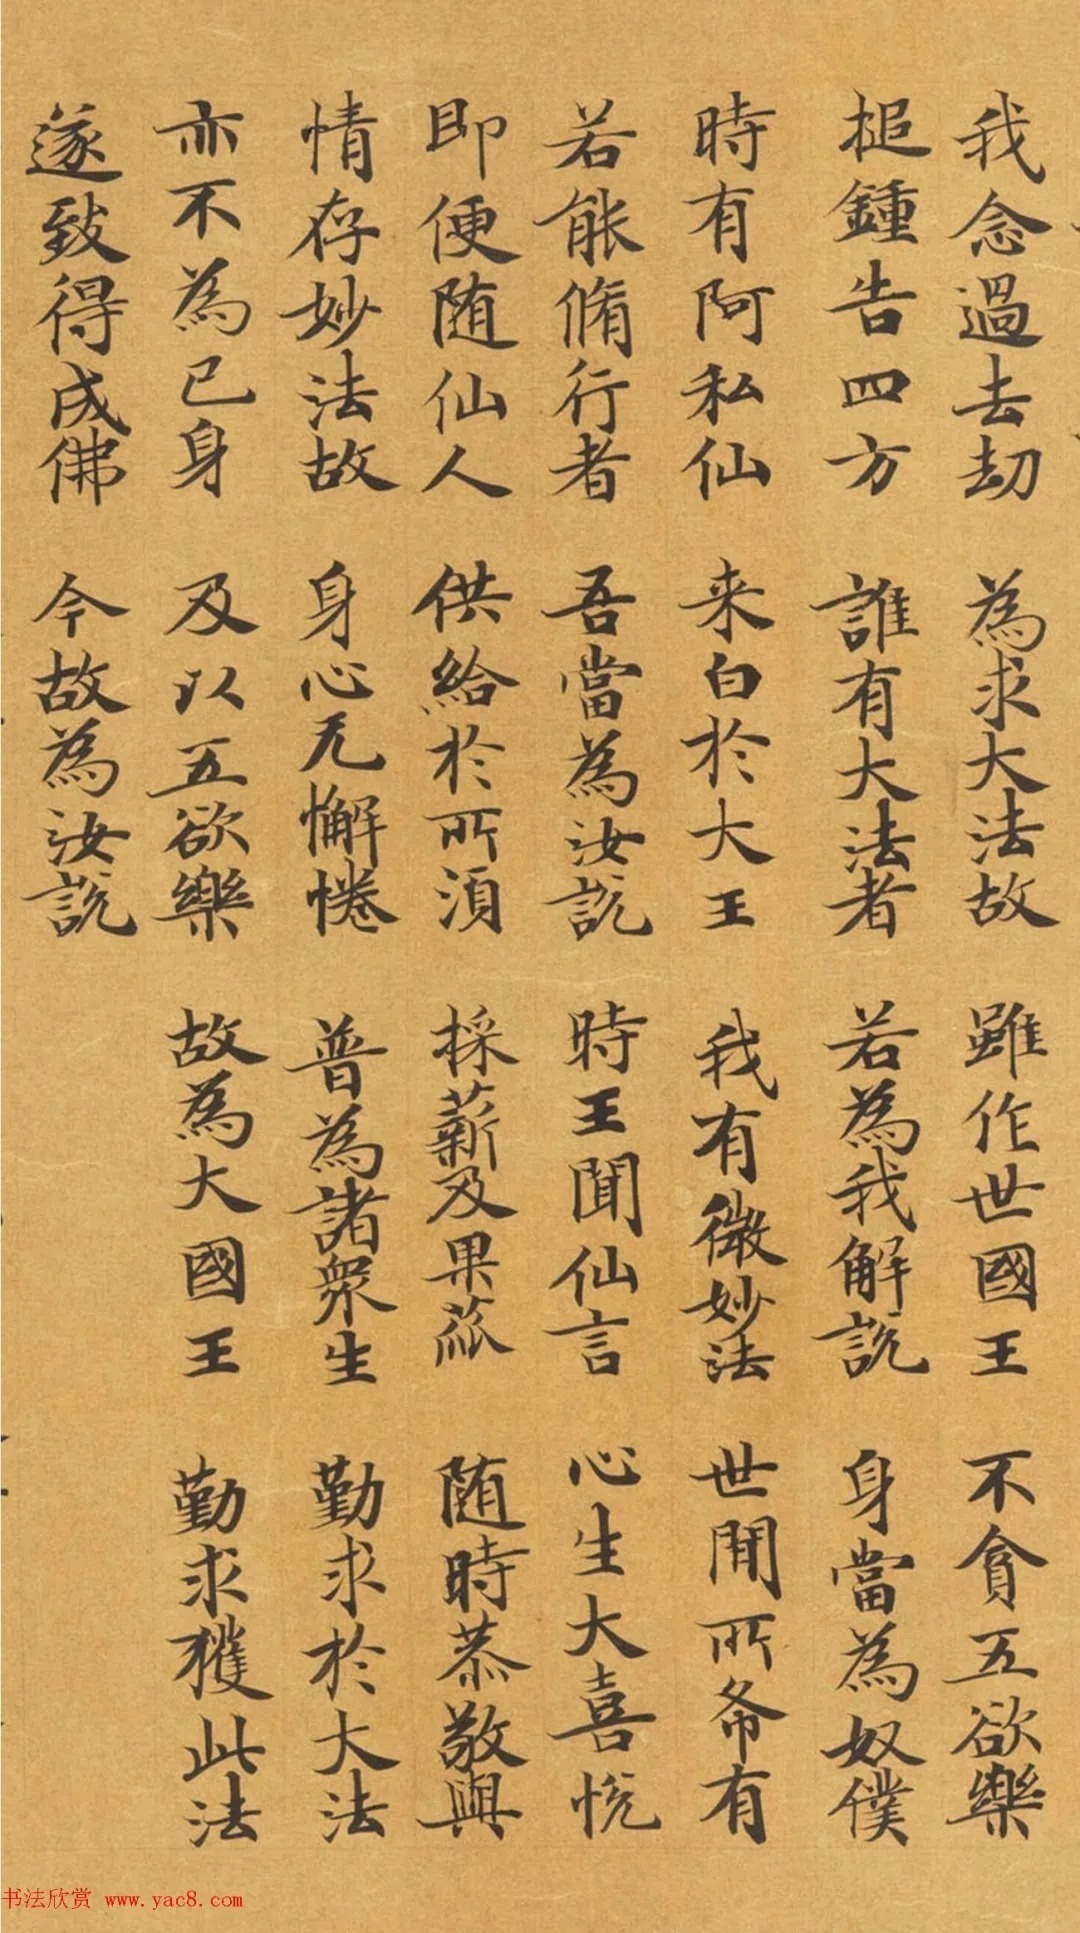 我念過去劫 為求大法故 雖作世國王 不貪五欲樂
搥鍾告四方 誰有大法者 若為我解說 身當為奴僕
時有阿私仙 来白於大王 我有微妙法 世間所希有
若能脩行者 吾當為汝說 時王聞仙言 心生大喜悅
即便随仙人 供給於所須 採薪及果蓏 随時恭敬與
情存妙法故 身心无懈惓 普為諸衆生 勤求於大法
亦不為己身 及以五欲樂 故為大國王 勤求獲此法
遂致得成佛 今故為汝說
书法欣赏 www.yac8.com